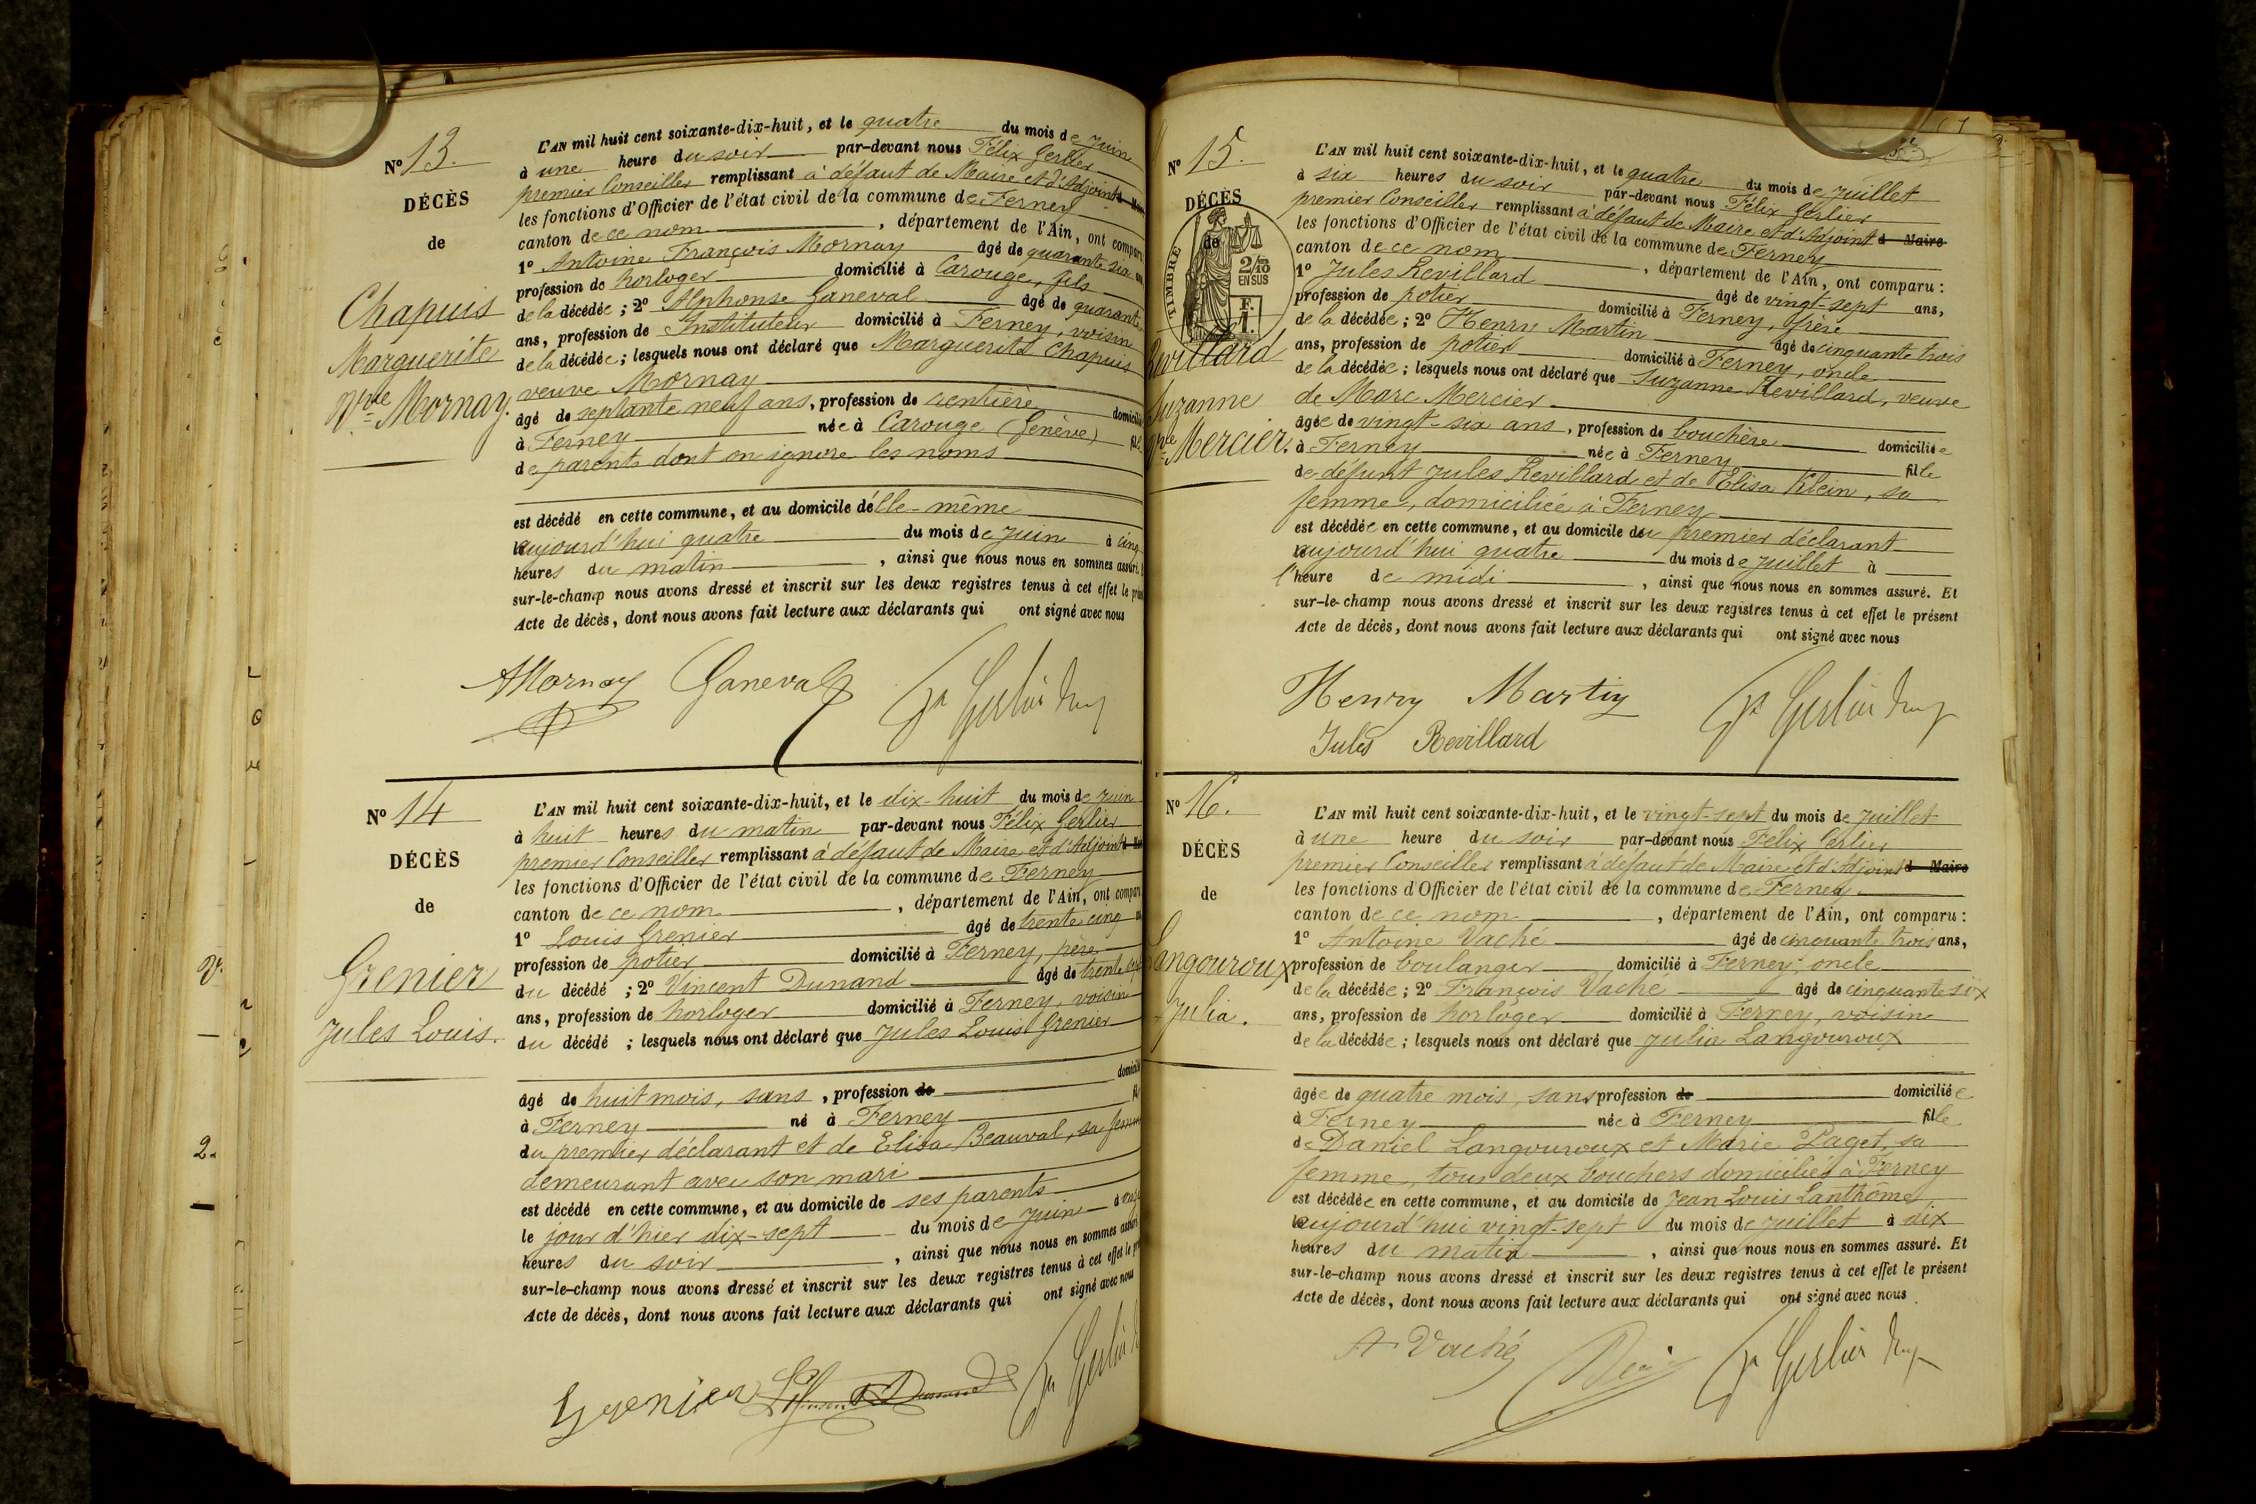 No 13.
DÉCÈS
de
Chapuis
Marguerite
Vve Mornay.
L'AN mil huit cent soixante-dix-huit, et le quatre du mois de juin
à une heure du soir par-devant nous Félix Gerlier
premier Conseiller remplissant à défaut de Maire et d'Adjoint
les fonctions d'Officier de l'état civil de la commune de Ferney
canton de ce nom, département de l'Ain, ont comparu
1o Antoine François Mornay âgé de quarante six
profession de horloger domicilié à Carouge, fils
de la décédée; 2o Alphonse Ganeval âgé de quarante
ans, profession de Instituteur domicilié à Ferney, voisin
de la décédée; lesquels nous ont déclaré que Marguerite Chapuis
veuve Mornay
âgé de septante neuf ans, profession de rentière domicilié
à Ferney née à Carouge (Genève)
de parents dont on ignore les noms
est décédé en cette commune, et au domicile d'elle-même
aujourd'hui quatre du mois de juin à cinq
heures du matin, ainsi que nous nous en sommes assuré.
sur-le-champ nous avons dressé et inscrit sur les deux registres tenus à cet effet le
Acte de décès, dont nous avons fait lecture aux déclarants qui ont signé avec nous
AMornay Ganeval Fx Gerlier
No 14
DÉCÈS
de
Grenier
Jules Louis.
L'AN mil huit cent soixante-dix-huit, et le dix-huit du mois de juin
à huit heures du matin par-devant nous Félix Gerlier
premier Conseiller remplissant à défaut de Maire et d'Adjoint
les fonctions d'Officier de l'état civil de la commune de Ferney
canton de ce nom, département de l'Ain, ont comparu
1o Louis Grenier âgé de trente cinq
profession de potier domicilié à Ferney, père
du décédé; 2o Vincent Dunand âgé de trente
ans, profession de horloger domicilié à Ferney, voisin
du décédé; lesquels nous ont déclaré que Jules Louis Grenier
domicilié
âgé de huit mois, sans, profession de
à Ferney né à Ferney
du premier déclarant et de Elisa Beauval, sa femme
demeurant avec son mari
est décédé en cette commune, et au domicile de ses parents
le jour d'hier dix-sept du mois de juin à onze
heures du soir, ainsi que nous nous en sommes assuré
sur-le-champ nous avons dressé et inscrit sur les deux registres tenus à cet effet le
Acte de décès, dont nous avons fait lecture aux déclarants qui ont signé avec nous
Grenier Dunand Fx Gerlier
No 15.
DÉCÈS
de
TIMBRE
2/10
EN SUS
Revillard
Suzanne
Vve Mercier.
L'AN mil huit cent soixante-dix-huit, et le quatre du mois de juillet
à six heures du soir par-devant nous Félix Gerlier
premier Conseiller remplissant à défaut de Maire et d'Adjoint d Maire
les fonctions d'Officier de l'état civil de la commune de Ferney
canton de ce nom, département de l'Ain, ont comparu:
1o Jules Revillard âgé de vingt-sept ans,
profession de potier domicilié à Ferney, frère
de la décédée; 2o Henry Martin âgé de cinquante trois
ans, profession de potier domicilié à Ferney, oncle
de la décédée; lesquels nous ont déclaré que Suzanne Revillard, veuve
de Marc Mercier
âgée de vingt-six ans, profession de bouchère domiciliée
à Ferney née à Ferney fille
de défunt Jules Revillard et de Elisa Klein, sa
femme, domiciliée à Ferney
est décédée en cette commune, et au domicile du premier déclarant
aujourd'hui quatre du mois de juillet à
l'heure de midi, ainsi que nous nous en sommes assuré. Et
sur-le-champ nous avons dressé et inscrit sur les deux registres tenus à cet effet le présent
Acte de décès, dont nous avons fait lecture aux déclarants qui ont signé avec nous
Henry Martin Fx Gerlier
Jules Revillard
No 16.
DÉCÈS
de
Langouroux
Julia.
L'AN mil huit cent soixante-dix-huit, et le vingt-sept du mois de juillet
à une heure du soir par-devant nous Félix Gerlier
premier Conseiller remplissant à défaut de Maire et d'Adjoint d Maire
les fonctions d'Officier de l'état civil de la commune de Ferney
canton de ce nom, département de l'Ain, ont comparu:
1o Antoine Vaché âgé de cinquante trois ans,
profession de boulanger domicilié à Ferney, oncle
de la décédée; 2o François Vaché âgé de cinquante six
ans, profession de horloger domicilié à Ferney, voisin
de la décédée; lesquels nous ont déclaré que Julia Langouroux
âgée de quatre mois, sans profession de domiciliée
à Ferney née à Ferney fille
de Daniel Langouroux et Marie Paget, sa
femme, tous deux bouchers domiciliés à Ferney
est décédée en cette commune, et au domicile de Jean Louis Lanthôme,
aujourd'hui vingt-sept du mois de juillet à dix
heures du matin, ainsi que nous nous en sommes assuré. Et
sur-le-champ nous avons dressé et inscrit sur les deux registres tenus à cet effet le présent
Acte de décès, dont nous avons fait lecture aux déclarants qui ont signé avec nous
A Vaché Fx Gerlier